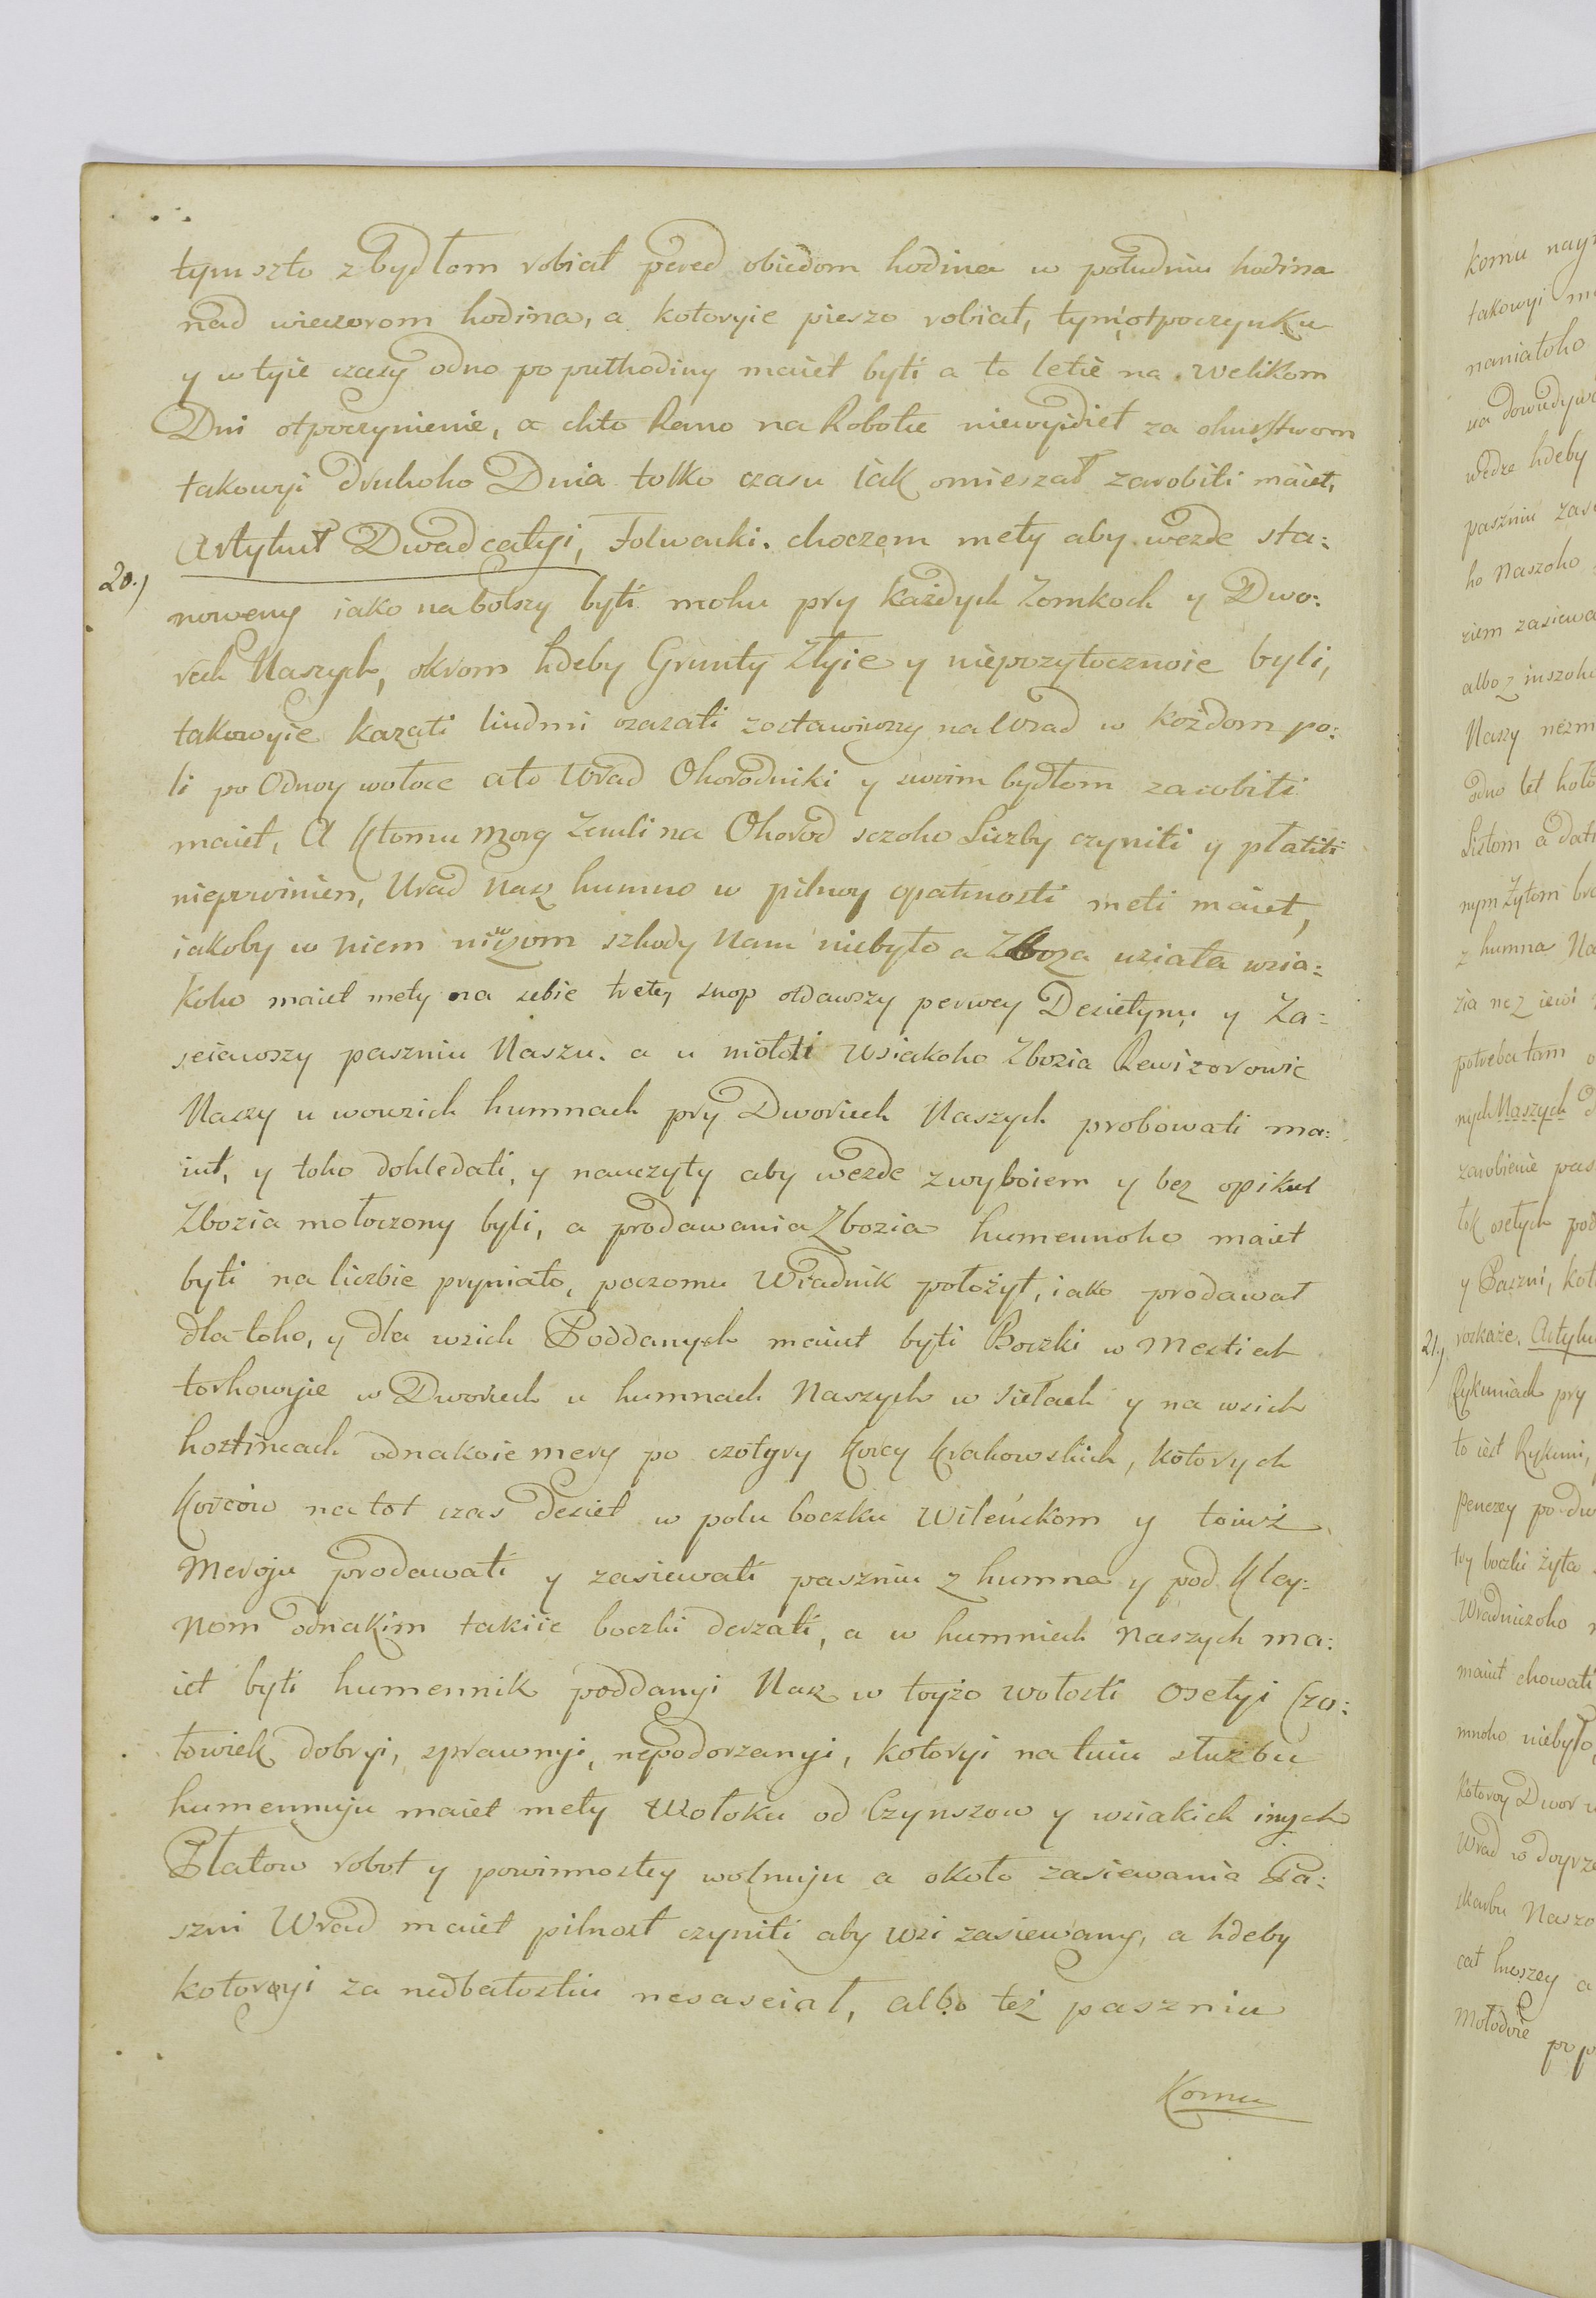 tym szto z bydłom robiat pered obiedom hodina w południu hodina
nad wieczorom hodina, a kotoryie pieszo robiat, tym otpoczynku
y w tyie czasy odno po puthodiny maiet byti a to letie na welikom
Dni otpoczynienie, a chto Rano na Robotu niewyidiet za ohurstwom
takowyi druhoho Dnia tolko czasu iak omieszał zarobiti maiet,
20.) Artykuł Dwadcatyi, Folwarki. choczem mety aby wezde sta:
noweny iako nabolszy byti mohu pry każdych Zomkoch y Dwo:
rech Naszych, okrom hdeby Grunty Złyie y niepozytocznoie byli,
takowyie kazati liudmi osazati zostawiwszy na Wrad w Koźdom po:
li po Odnoy wołoce ato Wrad Ohorodniki y swoim bydłom zarobiti
maiet, A Ktomu Morg Zemli na Ohorod sczoho Liczby czyniti y płatiti
niepowinien, Urad Nasz humno w pilnoy opatrnosti meti maiet,
iakoby w niem niwczom szkody Nam niebyło a Zboza usiaka wsia:
koho maiet mety na sebie trety snop otdawszy perwey Desietynu y Za:
seiawszy paszniu Naszu. a u mołoti Wsiakoho Zbozia Rewizorowie
Naszy u wowsich humnach pry Dworiech Naszych probowati ma:
iut, y toho dohledati, y nauczyty aby wezde z wyboiem y bez opikut
Zbozia mołoczony byli, a prodawania Zbozia humennoho maiet
byti na liczbie pryniato, poczomu Wradnik położyt, iako prodawał
dla toho, y dla wsich Poddanych maiut byti Boczki w Mestiech
torhowyie w Dworiech u humnach Naszych w siełach y na wsich
hostincach odnakoie mery po czotyry Korcy Krakowskich, kotorych
Korców na tot czas Desiet w polu boczku Wileńskom y toiuż
Meroju prodawati y zasiewati paszniu z humna y pod Kley:
nom odnakim takiie boczki derzati, a w humniech Naszych ma:
iet byti humennik poddanyi Nasz w toyżo wołosti Osetyi Czo:
łowiek dobryi, sprawnyi, nepodorzanyi, kotoryi na tuiu służbu
humennuju maiet mety Wołoku od Czynszow y wsiakich inych
Płatow robot y powinnostey wolnuju a około zasiewania Pa:
szni Wrad maiet pilnost czyniti aby wsi zasiewany, a hdeby
kotoryi za nedbałostiu nesaseiał, albo też paszniu
Komu
komu
takowyi
naniatoho
hdeby
paszniu
ho Naszoho
ziem zasiewa
albo z inszoho
Naszy
odno let
Listom a
nym Żytom
z humna Na
potreba tam
nych Naszych
zarobienie pas
y Paszni,
21.) roskaże. Artyku
Rykuniach pry
to iest Rykuni,
try boczki żyta
Wradniczoho
maiut chowati
mnoho niebyło,
Kotoroy Dwor
Wrad w
skarbu Naszo